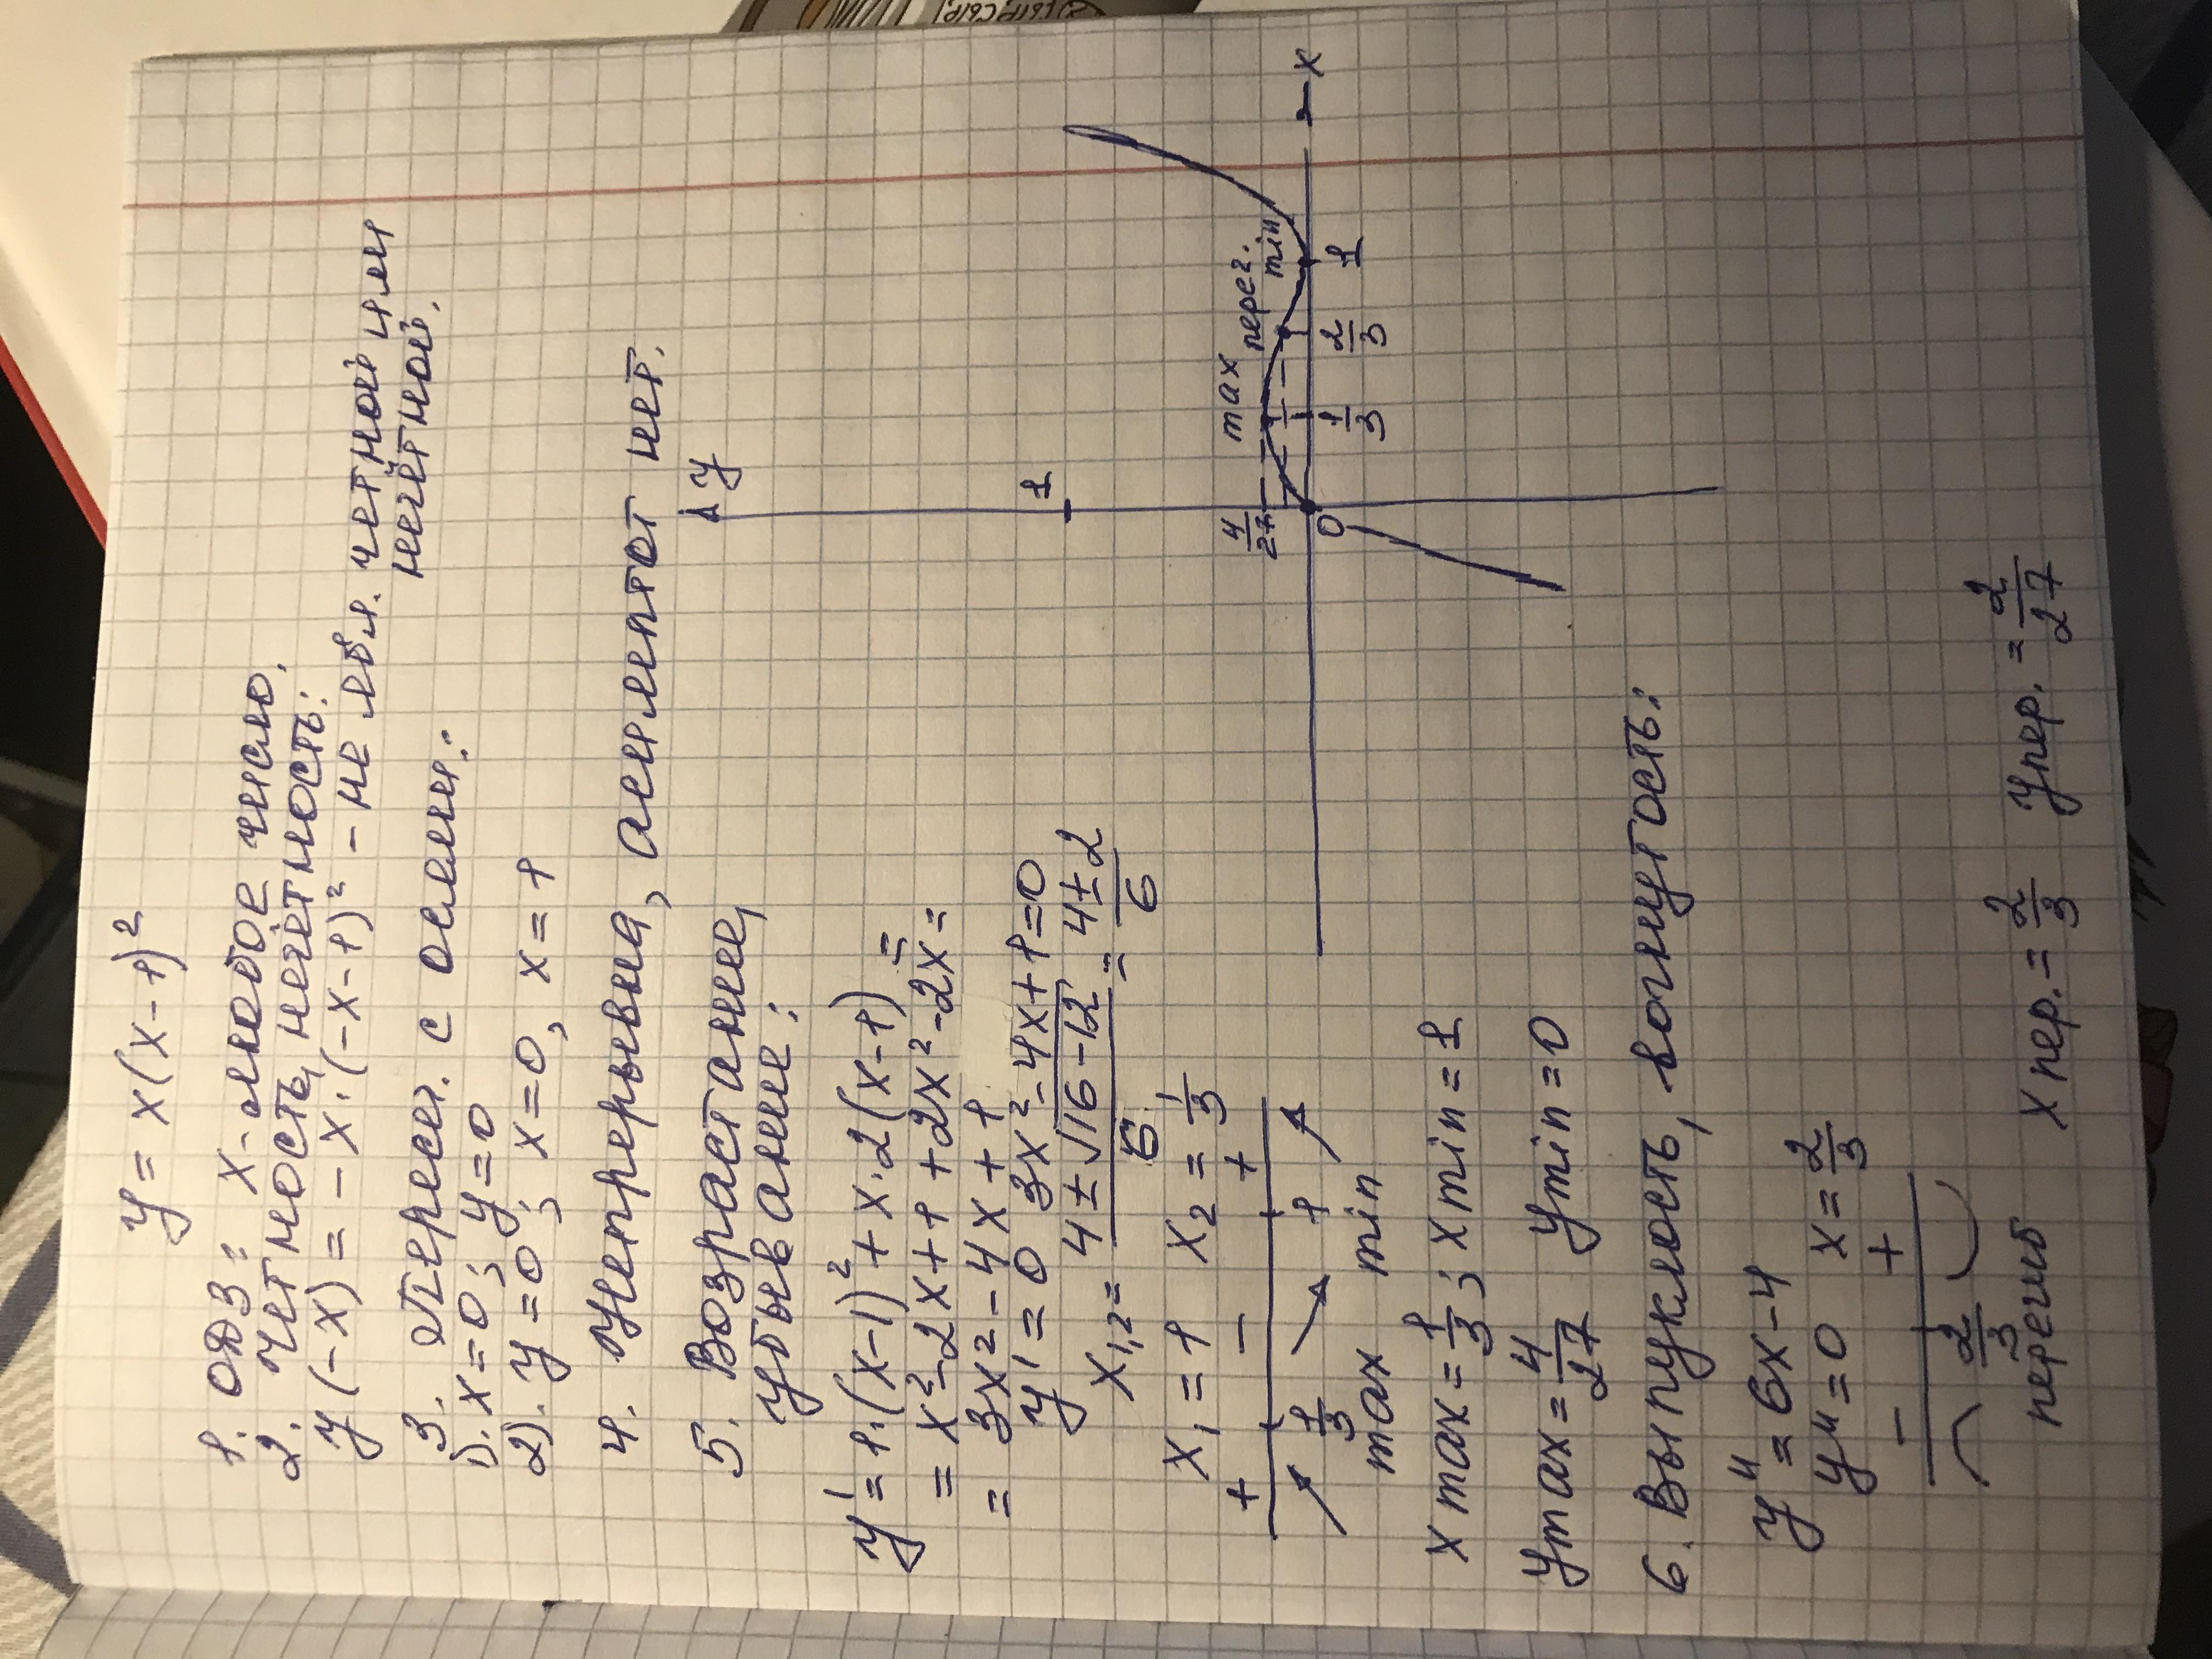 y = x(x-1)²
1. ОДЗ: x - любое число.
2. Четность, нечётность:
y(-x) = -x·(-x-1)² - не явл. четной или
нечётной.
3. Пересеч. с осями:
1). x=0; y=0
2). y=0; x=0, x=1
4. Непрерывна, асимптот нет.
5. Возрастание,
убывание:
y' = 1·(x-1)² + x·2(x-1) =
= x²-2x+1+2x²-2x =
= 3x²-4x+1
y' = 0 3x²-4x+1=0
x₁,₂ = (4±√16-12)/6 = (4±2)/6
x₁ = 1 x₂ = 1/3
+ - +
1/3 1
max min
x max = 1/3; x min = 1
y max = 4/27 y min = 0
6. Выпуклость, вогнутость:
y" = 6x-4
y" = 0 x = 2/3
- +
2/3
перегиб
x пер. = 2/3 y пер. = 2/27
y
1
4/27
max
перег.
min
0
1/3
2/3
1
x